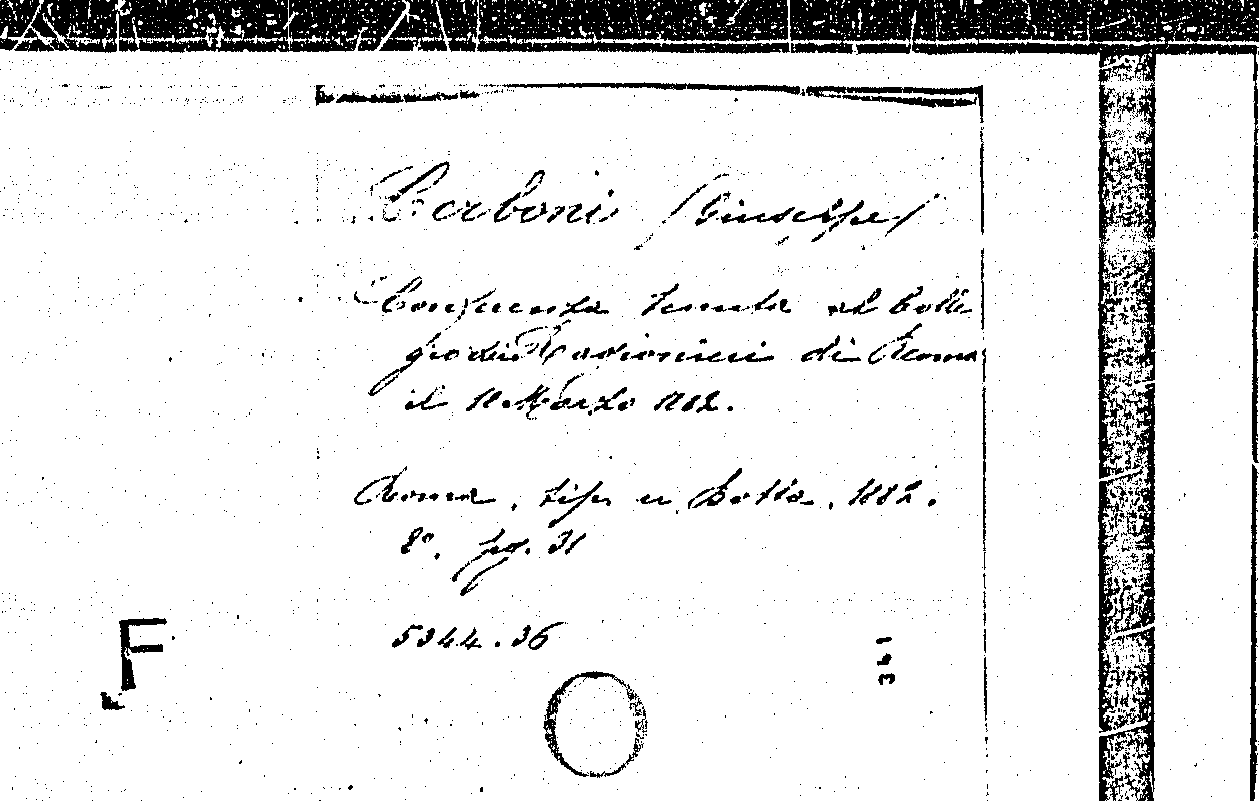 Cerboni (Giuseppe)
Conferenza tenuta al Colle
gio dei Ragionieri di Roma
il 11 Marzo 1882.
Roma, tip. Botta, 1882.
8°. pg. 31
5344.36
341
F